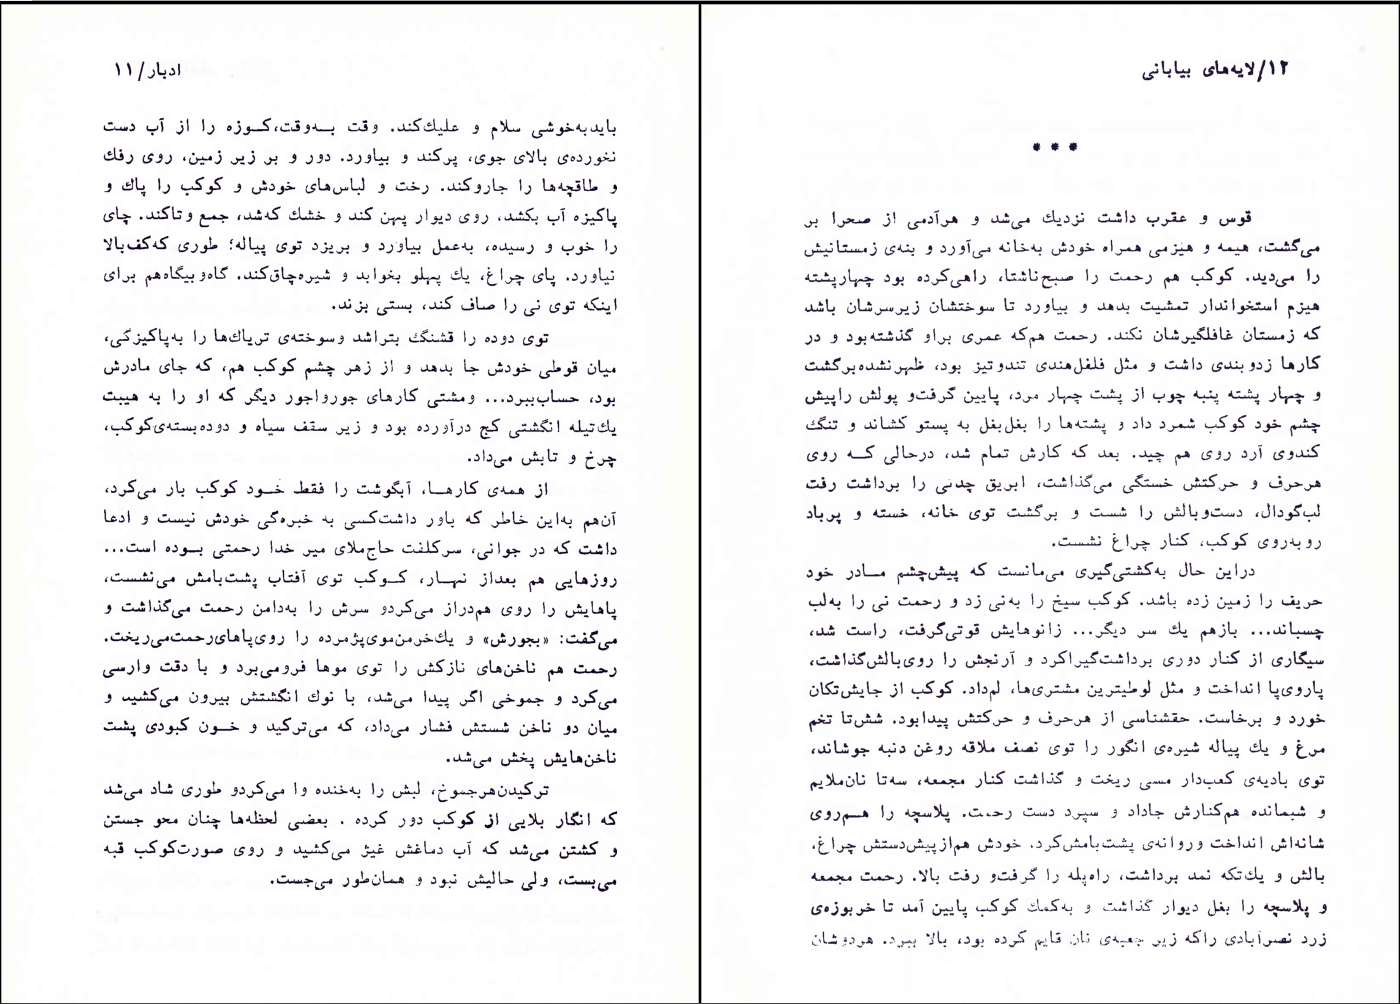 ادبار/۱۱
بایدبه‌خوشی سلام و علیك‌کند. وقت بـه‌وقت،کـوزه را از آب دست
نخورده‌ی بالای جوی، پرکند و بیاورد. دور و بر زیر زمین، روی رفك
و طاقچه‌ها را جاروکند. رخت و لباس‌های خودش و کوکب را پاك و
پاکیزه آب بکشد، روی دیوار پهن کند و خشك که‌شد، جمع وتاکند. چای
را خوب و رسیده، به‌عمل بیاورد و بریزد توی پیاله؛ طوری که‌کف‌بالا
نیاورد. پای چراغ، یك پهلو بخوابد و شیره‌چاق‌کند. گاه‌وبیگاه‌هم برای
اینکه توی نی را صاف کند، بستی بزند.
توی دوده را قشنگ بتراشد وسوخته‌ی تریاك‌ها را به‌پاکیزگی،
میان قوطی خودش جا بدهد و از زهر چشم کوکب هم، که جای مادرش
بود، حساب‌ببرد... ومشتی کارهای جورواجور دیگر که او را به هیبت
یك‌تیله انگشتی کج درآورده بود و زیر سقف سیاه و دوده‌بسته‌ی‌کوکب،
چرخ و تابش می‌داد.
از همه‌ی کارهـا، آبگوشت را فقط خـود کوکب بار می‌کرد،
آن‌هم به‌این خاطر که باور داشت‌کسی به خبره‌گی خودش نیست و ادعا
داشت که در جوانی، سرکلفت حاج‌ملای میر خدا رحمتی بـوده است...
روزهایی هم بعداز نهـار، کـوکب توی آفتاب پشت‌بامش می‌نشست،
پاهایش را روی هم‌دراز می‌کردو سرش را به‌دامن رحمت می‌گذاشت و
می‌گفت: «بجورش» و یك‌خرمن‌موی‌پژمرده را روی‌پاهای‌رحمت‌می‌ریخت.
رحمت هم ناخن‌های نازکش را توی موها فرومی‌برد و با دقت وارسی
می‌کرد و جموخی اگر پیدا می‌شد، با نوك انگشتش بیرون می‌کشید و
میان دو ناخن شستش فشار می‌داد، که می‌ترکید و خـون کبودی پشت
ناخن‌هایش پخش می‌شد.
ترکیدن‌هرجموخ، لبش را به‌خنده وا می‌کردو طوری شاد می‌شد
که انگار بلایی از کوکب دور کرده . بعضی لحظه‌ها چنان محو جستن
و کشتن می‌شد که آب دماغش غیژ می‌کشید و روی صورت‌کوکب قبه
می‌بست، ولی حالیش نبود و همان‌طور می‌جست.
۱۲/لایه‌های بیابانی
* * *
قوس و عقرب داشت نزدیك می‌شد و هرآدمی از صحرا بر
می‌گشت، هیمه و هیزمی همراه خودش به‌خانه می‌آورد و بنه‌ی زمستانیش
را می‌دید. کوکب هم رحمت را صبح‌ناشتا، راهی‌کرده بود چهارپشته
هیزم استخواندار تمشیت بدهد و بیاورد تا سوختشان زیرسرشان باشد
که زمستان غافلگیرشان نکند. رحمت هم‌که عمری براو گذشته‌بود و در
کارها زدوبندی داشت و مثل فلفل‌هندی تندوتیز بود، ظهرنشده‌برگشت
و چهار پشته پنبه چوب از پشت چهار مرد، پایین گرفت‌و پولش راپیش
چشم خود کوکب شمرد داد و پشته‌ها را بغل‌بغل به پستو کشاند و تنگ
کندوی آرد روی هم چید. بعد که کارش تمام شد، درحالی کـه روی
هرحرف و حرکتش خستگی می‌گذاشت، ابریق چدنی را برداشت رفت
لب‌گودال، دست‌وبالش را شست و برگشت توی خانه، خسته و پرباد
روبه‌روی کوکب، کنار چراغ نشست.
دراین حال به‌کشتی‌گیری می‌مانست که پیش‌چشم مـادر خود
حریف را زمین زده باشد. کوکب سیخ را به‌نی زد و رحمت نی را به‌لب
چسباند... بازهم یك سر دیگر... زانوهایش قوتی‌گرفت، راست شد،
سیگاری از کنار دوری برداشت‌گیراکرد و آرنجش را روی‌بالش‌گذاشت،
پاروی‌پا انداخت و مثل لوطیترین مشتری‌ها، لم‌داد. کوکب از جایش‌تکان
خورد و برخاست. حقشناسی از هرحرف و حرکتش پیدابود. شش‌تا تخم
مرغ و یك پیاله شیره‌ی انگور را توی نصف ملاقه روغن دنبه جوشاند،
توی بادیه‌ی کعب‌دار مسی ریخت و گذاشت کنار مجمعه، سه‌تا نان‌ملایم
و شبمانده هم‌کنارش جاداد و سپرد دست رحمت. پلاسچه را هـم‌روی
شانه‌اش انداخت وروانه‌ی پشت‌بامش‌کرد. خودش هم‌ازپیش‌دستش چراغ،
بالش و یك‌تکه نمد برداشت، راه‌پله را گرفت‌و رفت بالا. رحمت مجمعه
و پلاسچه را بغل دیوار گذاشت و به‌کمك کوکب پایین آمد تا خربوزه‌ی
زرد نصرآبادی راکه زیر جعبه‌ی نان قایم کرده بود، بالا ببرد. هردوشان